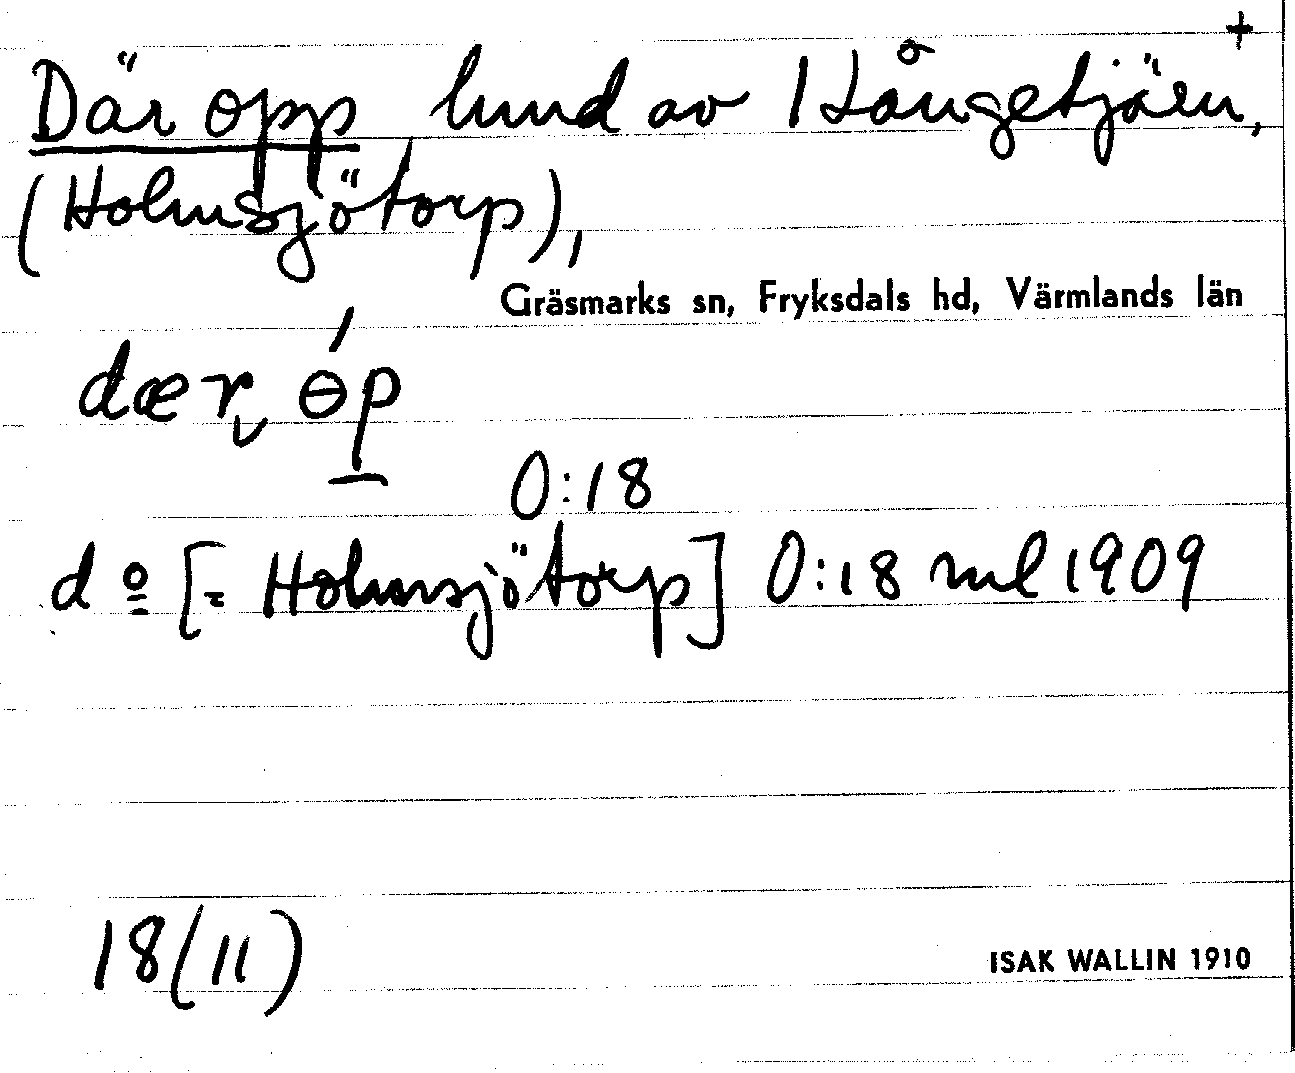 +
Där opp hmd av Hångetjärn,
(Holmsjötorp),
Gräsmarks sn, Fryksdals hd, Värmlands län
dær ɵ́p
0:18
dº [= Holmsjötorp] 0:18 ml 1909
18(11)
ISAK WALLIN 1910